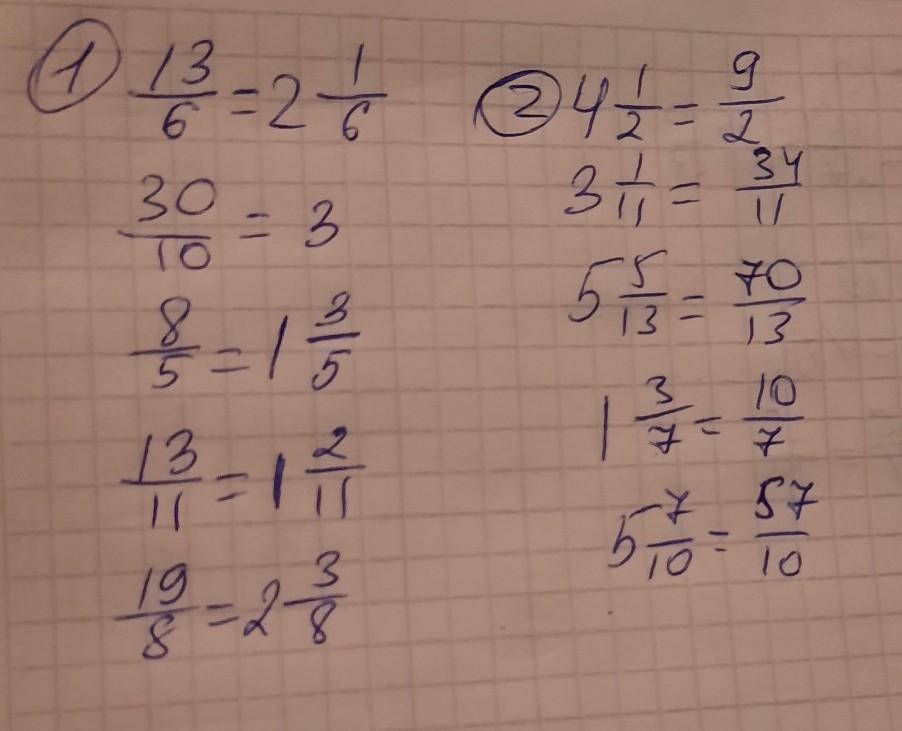 ① 13/6 = 2 1/6
30/10 = 3
8/5 = 1 3/5
13/11 = 1 2/11
19/8 = 2 3/8
② 4 1/2 = 9/2
3 1/11 = 34/11
5 5/13 = 70/13
1 3/7 = 10/7
5 7/10 = 57/10